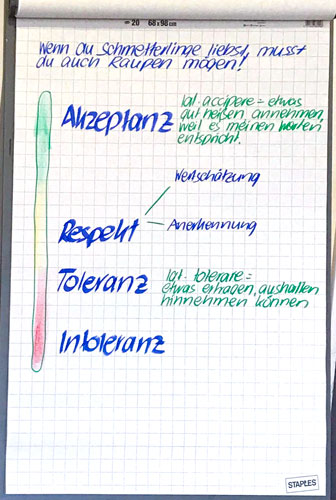 20 68x98cm
Wenn du Schmetterlinge liebst, musst
du auch Raupen mögen!
Akzeptanz
lat. accipere = etwas
gut heißen, annehmen,
weil es meinen Werten
entspricht.
Wertschätzung
Respekt
Anerkennung
Toleranz
lat. tolerare =
etwas ertragen, aushalten
hinnehmen können
Intoleranz
STAPLES